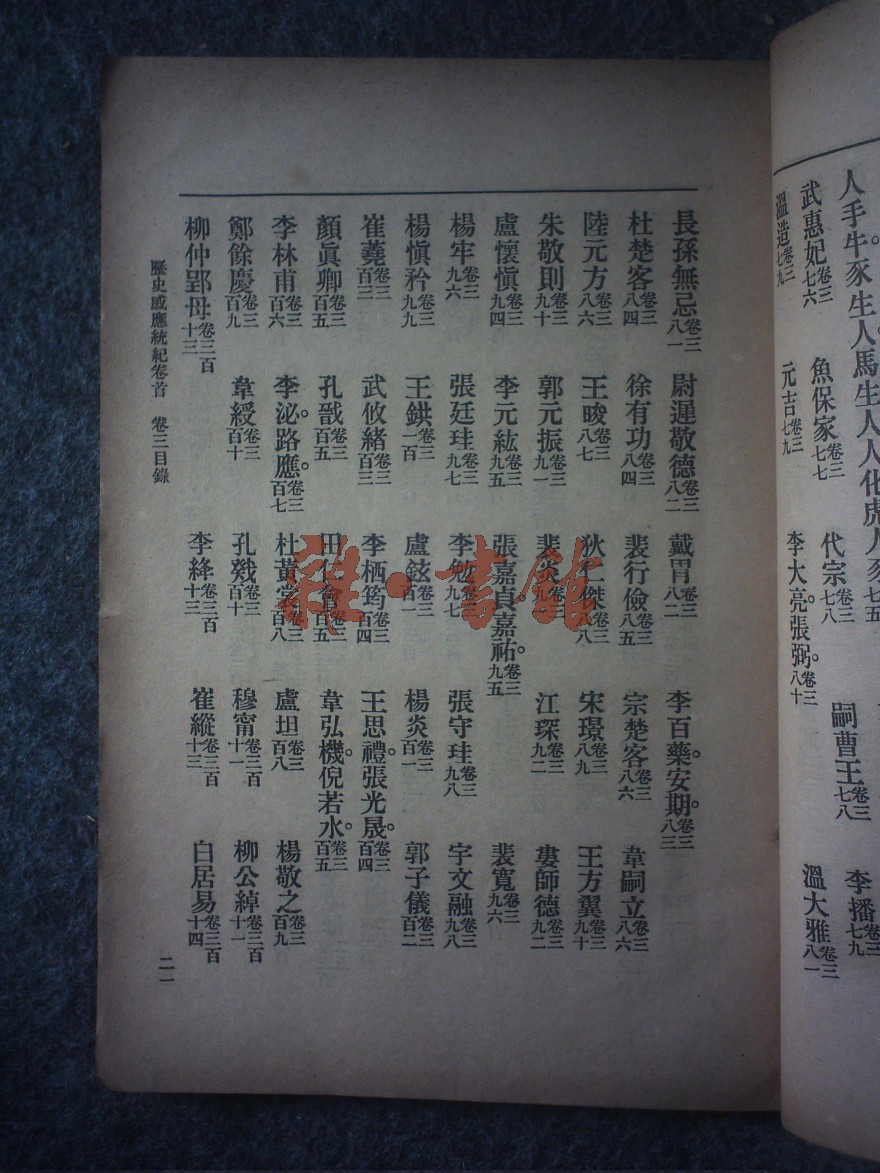 人手牛豕生人。馬生人。人化虎。人豕七五
武惠妃卷三七六 魚保家卷三七七 代宗卷三七八 嗣曹王卷三七八 李播卷三七九
溫造卷三七九 元吉卷三七九 李大亮。張弼。卷三八十 溫大雅卷三八一
長孫無忌卷三八一 尉遲敬德卷三八二 戴胄卷三八二 李百藥。安期。卷三八三
杜楚客卷三八四 徐有功卷三八四 裴行儉卷三八五 宗楚客卷三八六 韋嗣立卷三八六
陸元方卷三八六 王晙卷三八七 狄仁傑卷三八八 宋璟卷三八九 王方翼卷三九十
朱敬則卷三九十 郭元振卷三九一 裴炎卷三 江琛卷三九二 婁師德卷三九二
盧懷慎卷三九四 李元紘卷三九五 張嘉貞。嘉祐。卷三九五 裴寬卷三九六
楊牢卷三九六 張廷珪卷三九七 李勉卷三九七 張守珪卷三九八 宇文融卷三九八
楊愼矜卷三九九 王鉷卷三一百 盧鉉卷三百一 楊炎卷三百一 郭子儀卷三百二
崔蕘卷三百三 武攸緒卷三百三 李栖筠卷三百四 王思禮。張光晟。卷三百四
顏眞卿卷三百五 孔戢卷三百五 田仁會卷三百五 韋弘機。倪若水。卷三百五
李林甫卷三百六 李泌。路應。卷三百七 杜黃裳卷三百八 盧坦卷三百八 楊敬之卷三百九
鄭餘慶卷三百九 韋綬卷三百十 孔戣卷三百十 穆甯卷三百十一 柳公綽卷三百十一
柳仲郢母卷三百十三 李絳卷三百十三 崔縱卷三百十三 白居易卷三百十四
歷史感應統紀卷首 卷三目錄 二一
雜·書館